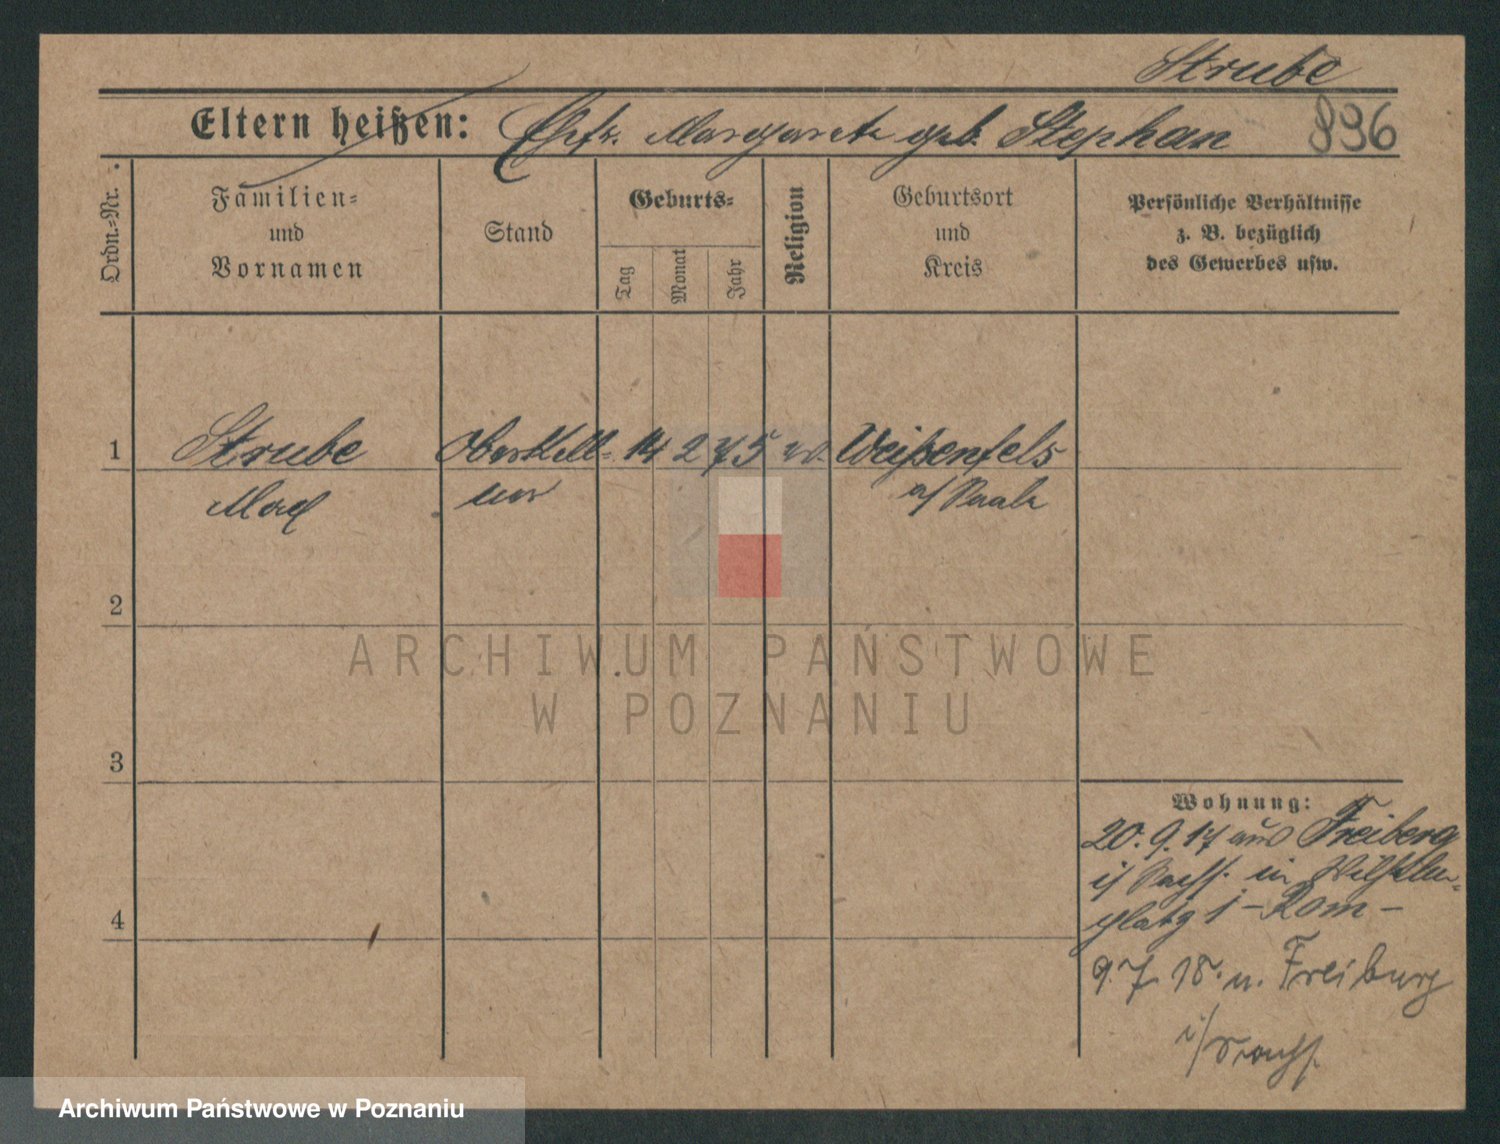 Strube
Eltern heißen: Ehfr. Margarete geb. Stephan 896
Ordn.-Nr.
Familien-
und
Vornamen
Stand
Geburts-
Tag
Monat
Jahr
Religion
Geburtsort
und
Kreis
Persönliche Verhältnisse
z. B. bezüglich
des Gewerbes usw.
1 Strube Oberkell- 14 2 75 ev. Weißenfels
Max ner a/Saale
2
ARCHIWUM PAŃSTWOWE
W POZNANIU
3
Wohnung:
20. 9. 17 aus Freiberg
i/Sachs. in Wilhelm-
platz 1 - Rom -
4
9. 7. 18. n. Freiburg
i/Sachs.
Archiwum Państwowe w Poznaniu